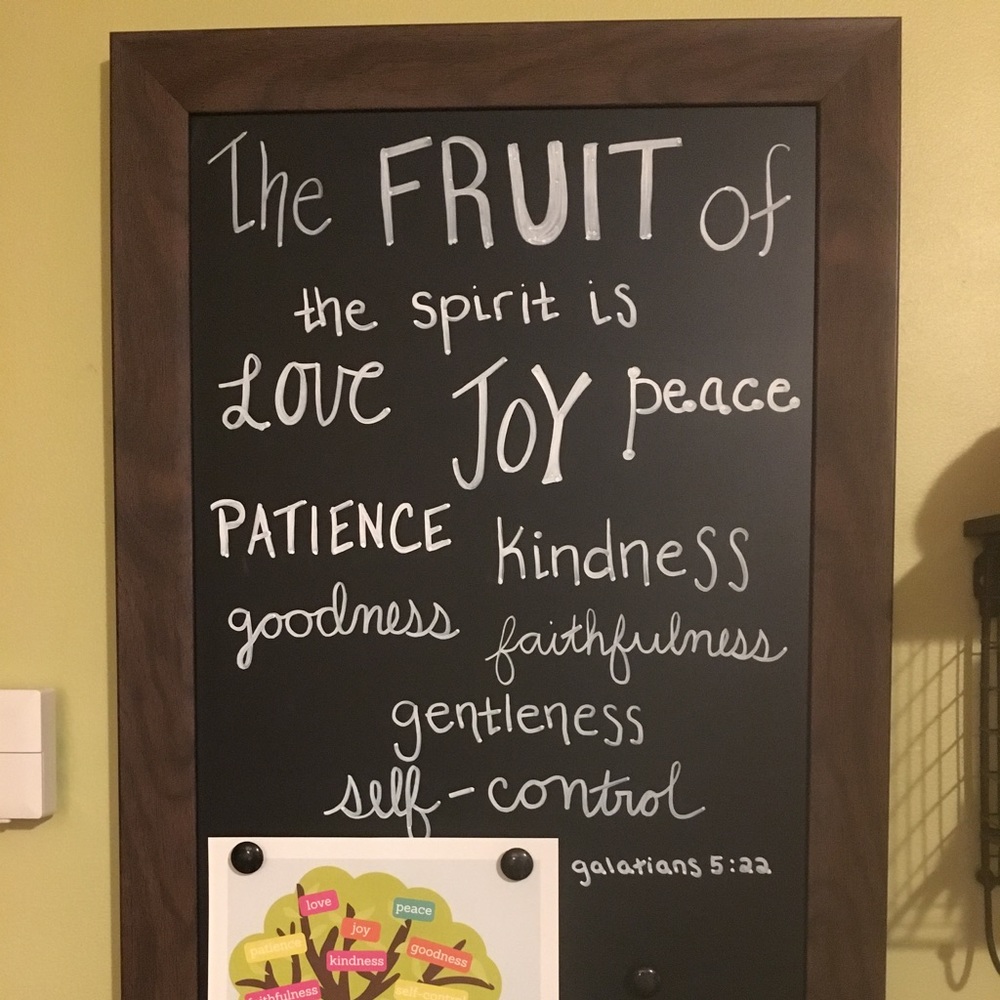 The FRUIT of
the spirit is
LOVE JOY peace
PATIENCE kindness
goodness faithfulness
gentleness
self-control
galatians 5:22
love
peace
joy
patience
goodness
kindness
faithfulness
self-control